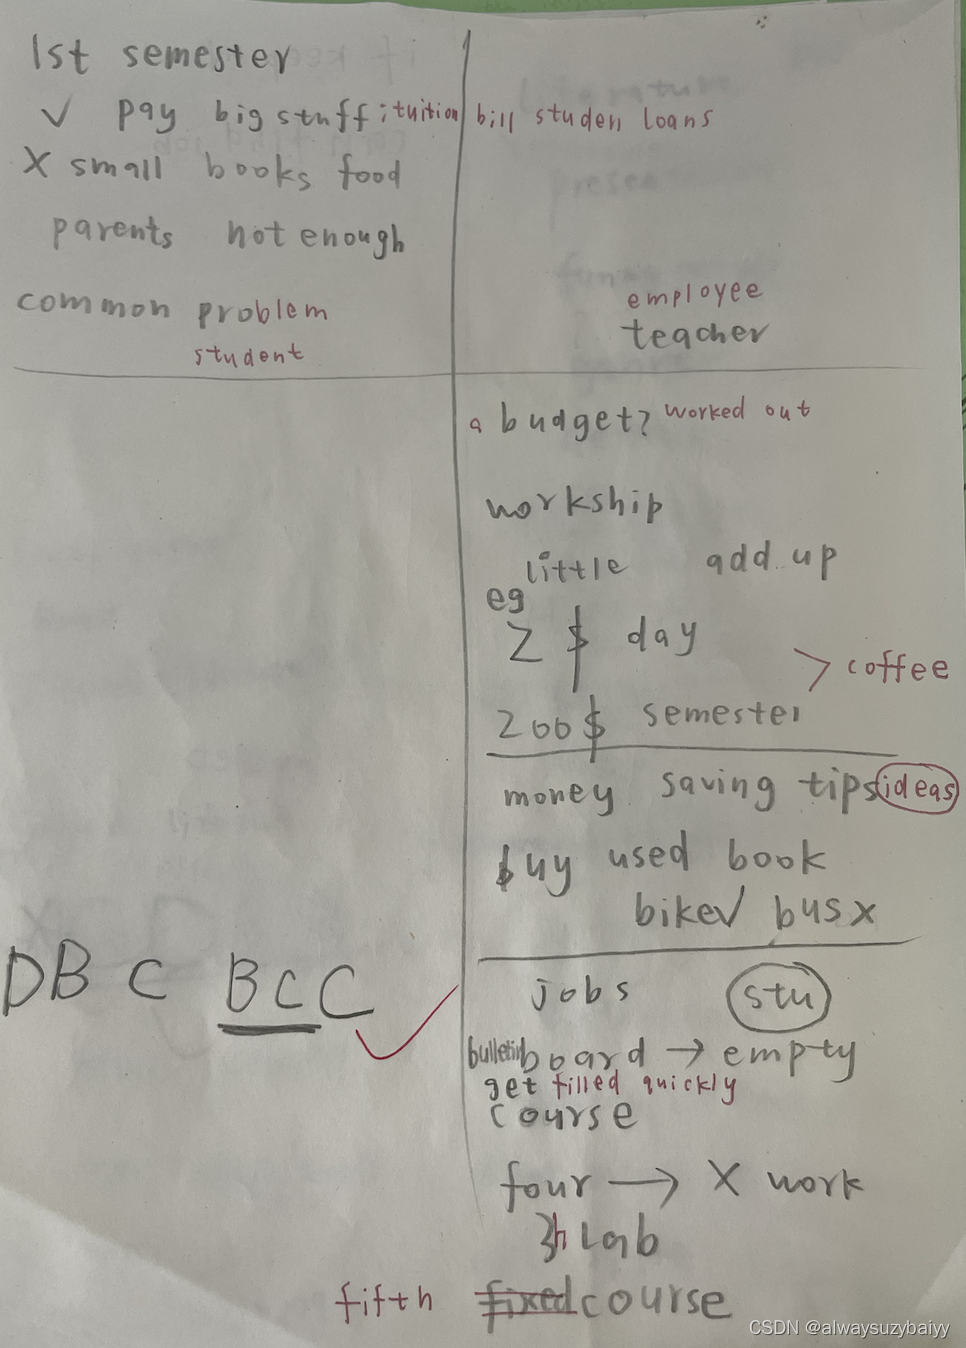 1st semester
√ pay big stuff ; tuition bill studen loans
X small books food
parents not enough
common problem
student
employee
teacher
a budget? worked out
workship
little add up
eg
2 $ day
> coffee
200$ semester
money saving tips ideas
buy used book
bike√ bus x
DB C BCC
jobs stu
bulletin board → empty
get filled quickly
course
four → X work
3h Lab
fifth fixed course
CSDN @alwaysuzybaiyy